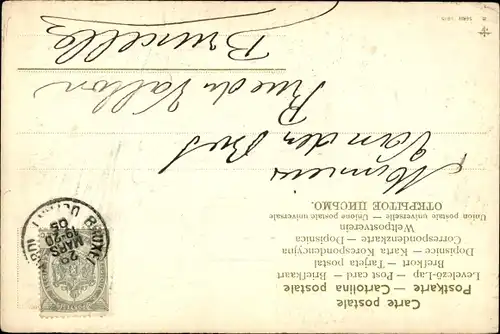 Carte postale
Postkarte — Cartolina postale
Levelező-Lap — Post card — Briefkaart
Brefkort — Tarjeta postal
Dopisnice — Karta Korespondencyjna
Correspondenzkarte — Dopisnica
Weltpostverein
Union postale universelle — Unione postale universale
ОТКРЫТОЕ ПИСЬМО.
Monsieur
Van den
Rue du Vallon
Bruxelles
29
MARS
19-20
05